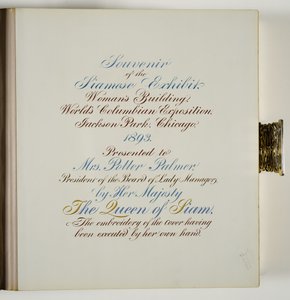 Souvenir
of the
Siamese Exhibit.
Woman's Building.
World's Columbian Exposition.
Jackson Park, Chicago.
1893.
Presented to
Mrs. Potter Palmer.
President of the Board of Lady Managers,
by Her Majesty
The Queen of Siam.
The embroidery of the cover having
been executed by her own hand.